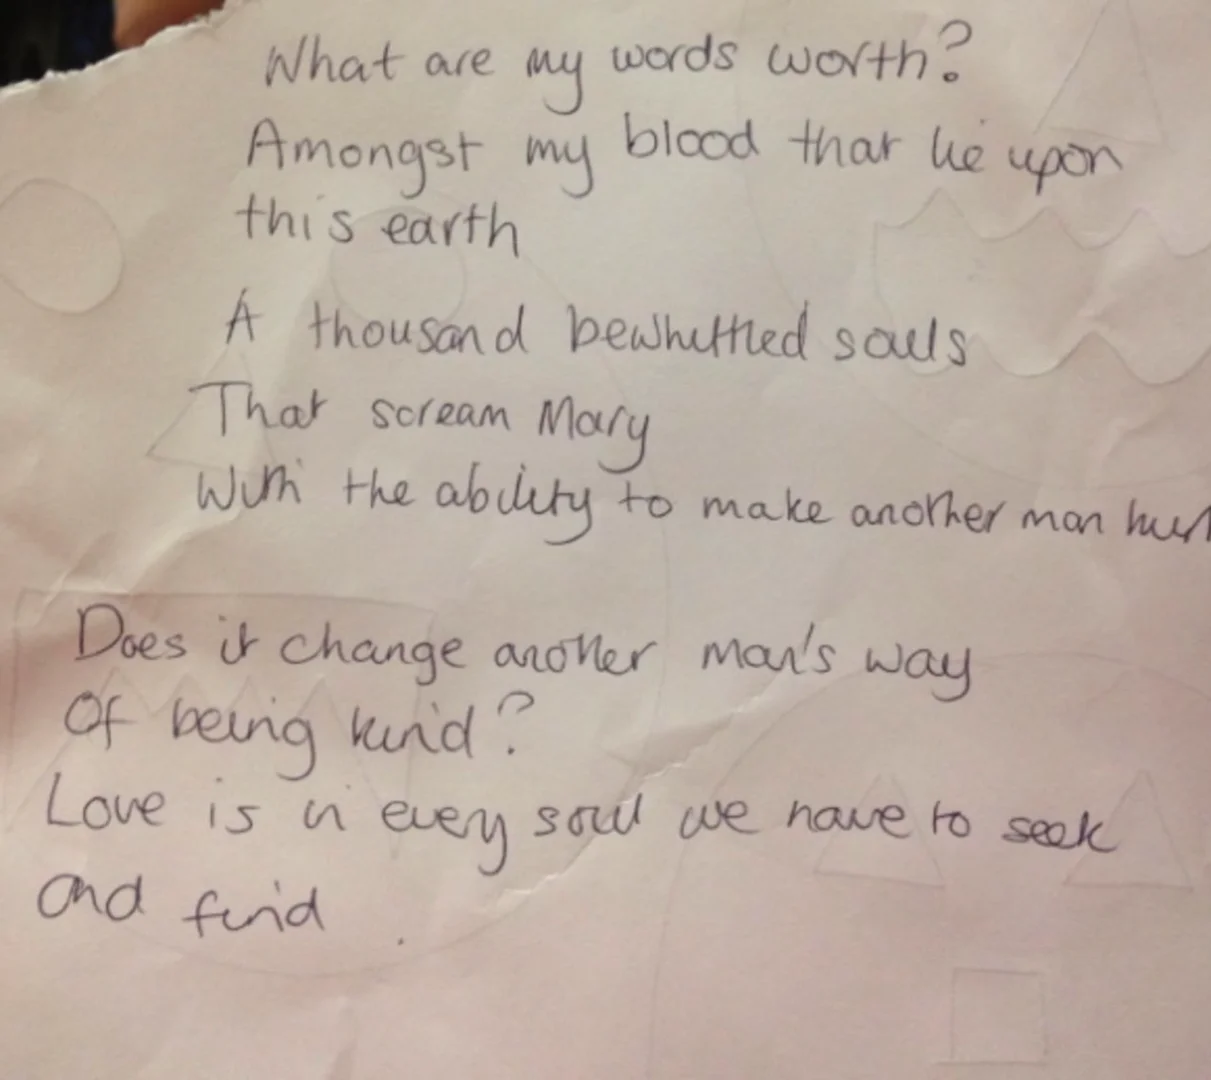 What are my words worth?
Amongst my blood that lie upon
this earth
A thousand bewhittled souls
That scream Mary
With the ability to make another man
Does it change another man's way
Of being kind?
Love is in every soul we have to seek
and find.